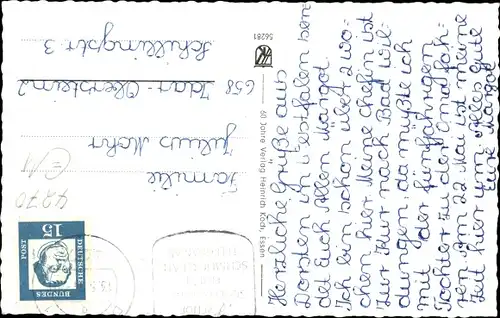 Herzliche Grüße aus
Dorsten in Westfalen sen-
det Euch Allen Margot.
Ich bin schon über 2 Wo-
chen hier. Meine Chefin ist
zur Kur nach Bad Wil-
dungen, da müßte ich
mit der fünfjährigen
Tochter zu der Oma fah-
ren. Am 22 Mai ist meine
Zeit hier um. Alles Gute
Eure Margot
50 Jahre Verlag Heinrich Koch, Essen
56281
Familie
Julius Mohr
658 Idar-Oberstein 2
Schillingstr. 3
4270
15
DEUTSCHE
BUNDES
POST